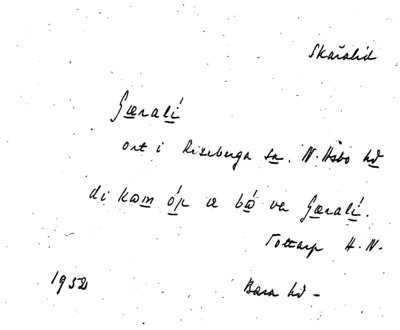 Skäralid
Gæralí
ort i Riseberga sn. N. Åsbo hd
di kæm óp æ bǿ ve Gæralí.
Tottarp H. N.
1952
Bara hd -